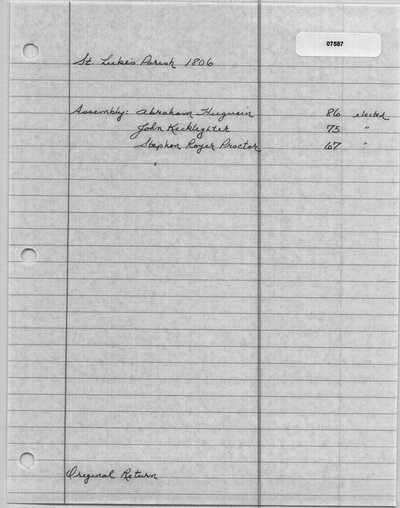 07587
St. Lukes Parish 1806
Assembly: Abraham Huguein 86 elected
John Kecklighter 75 "
Stephen Royer Proctor 67 "
Original Return